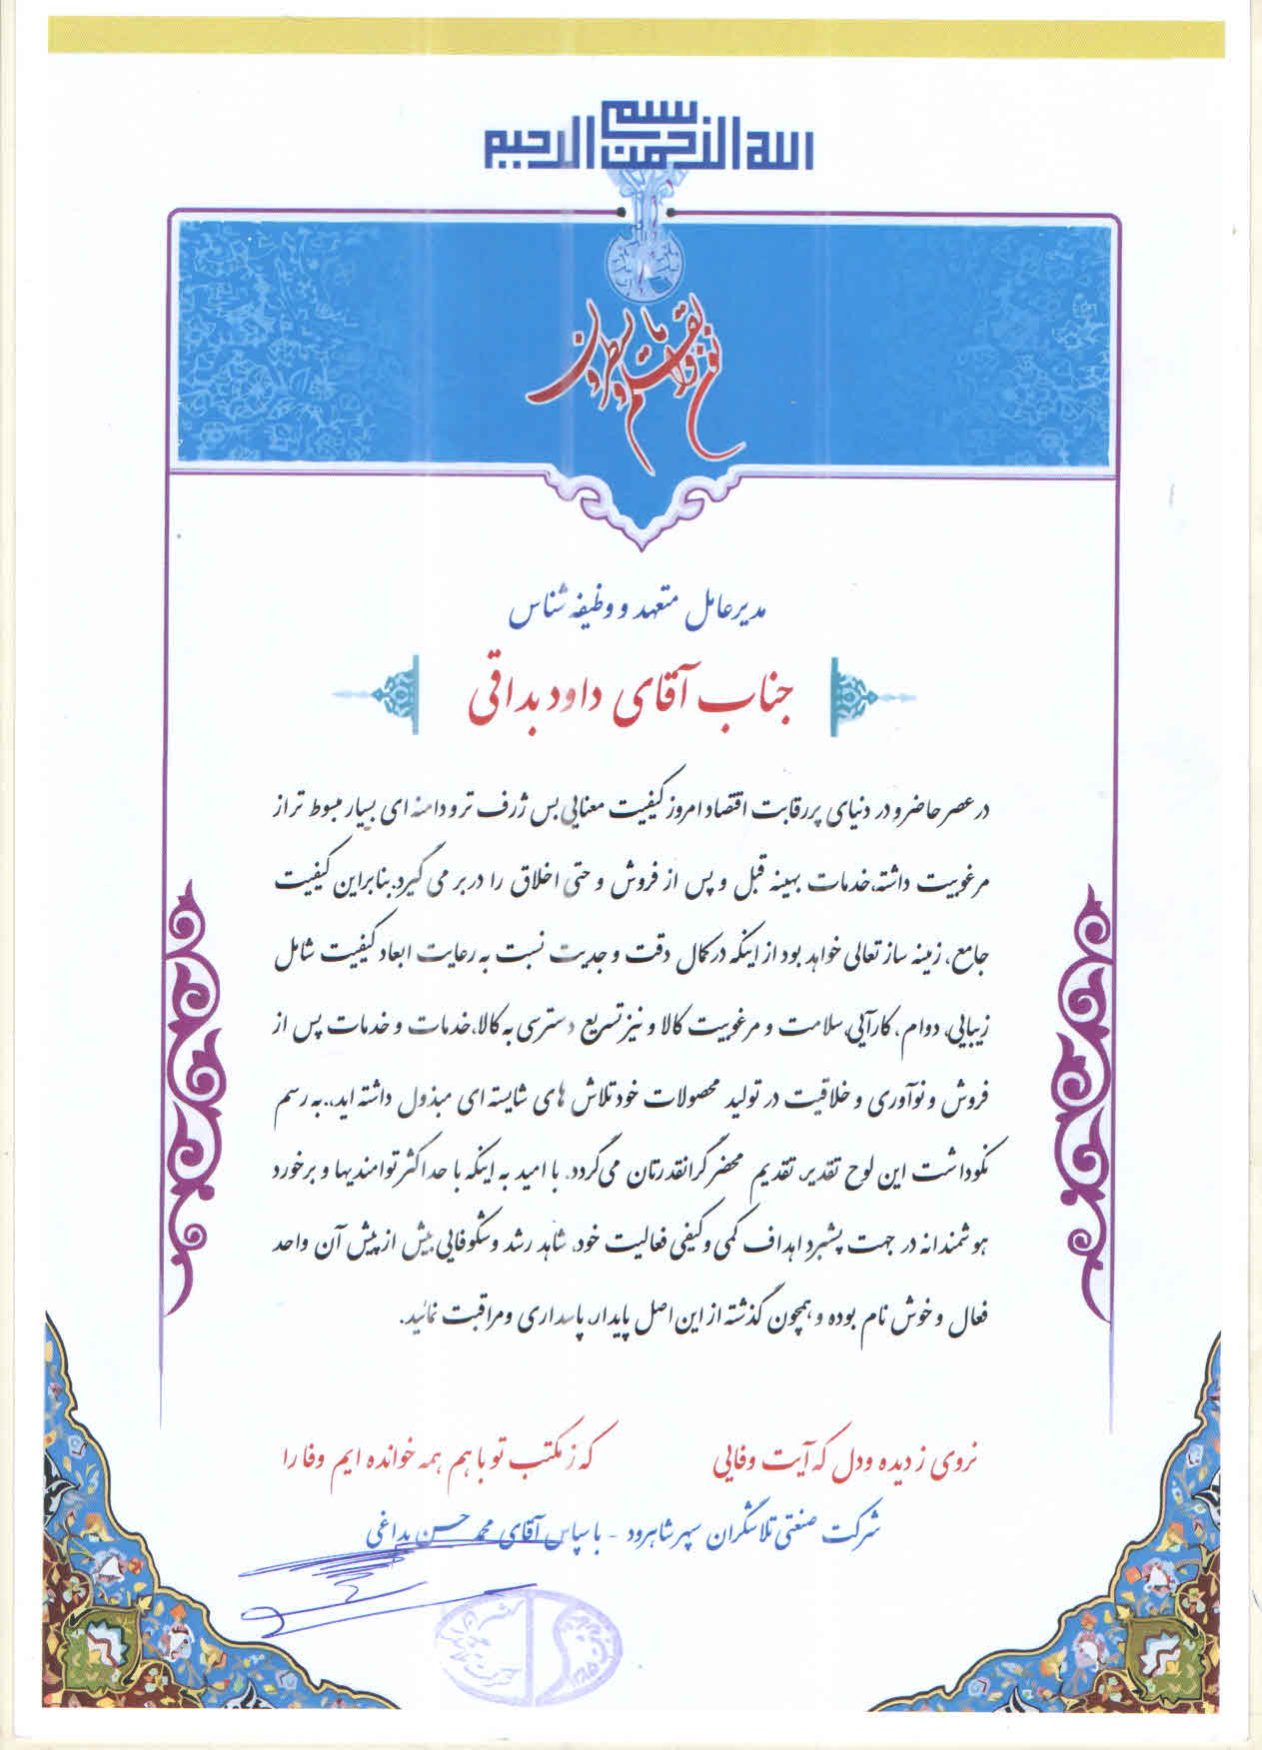 بسم الله الرحمن الرحیم
ن والقلم و ما یسطرون
مدیرعامل متعهد و وظیفه شناس
جناب آقای داود بداقی
در عصر حاضر و در دنیای پررقابت اقتصاد امروز کیفیت معنایی بس ژرف تر و دامنه ای بسیار مبسوط تر از
مرغوبیت داشته،خدمات بهینه قبل و پس از فروش و حتی اخلاق را در بر می گیرد.بنابراین کیفیت
جامع، زمینه ساز تعالی خواهد بود از اینکه در کمال دقت و جدیت نسبت به رعایت ابعاد کیفیت شامل
زیبایی، دوام، کارآیی،سلامت و مرغوبیت کالا و نیز تسریع دسترسی به کالا،خدمات و خدمات پس از
فروش و نوآوری و خلاقیت در تولید محصولات خود تلاش های شایسته ای مبذول داشته اید،..به رسم
نکوداشت این لوح تقدیر تقدیم محضر گرانقدرتان می گردد. با امید به اینکه با حداکثر توامندیها و برخورد
هوشمندانه در جهت پیشبرد اهداف کمی و کیفی فعالیت خود، شاهد رشد و شکوفایی بیش از پیش آن واحد
فعال و خوش نام بوده و همچون گذشته از این اصل پایدار، پاسداری ومراقبت نمائید.
نروی ز دیده ودل که آیت وفایی که ز مکتب تو با هم همه خوانده ایم وفا را
شرکت صنعتی تلاشگران سپهر شاهرود - با سپاس آقای محمد حسن بداغی